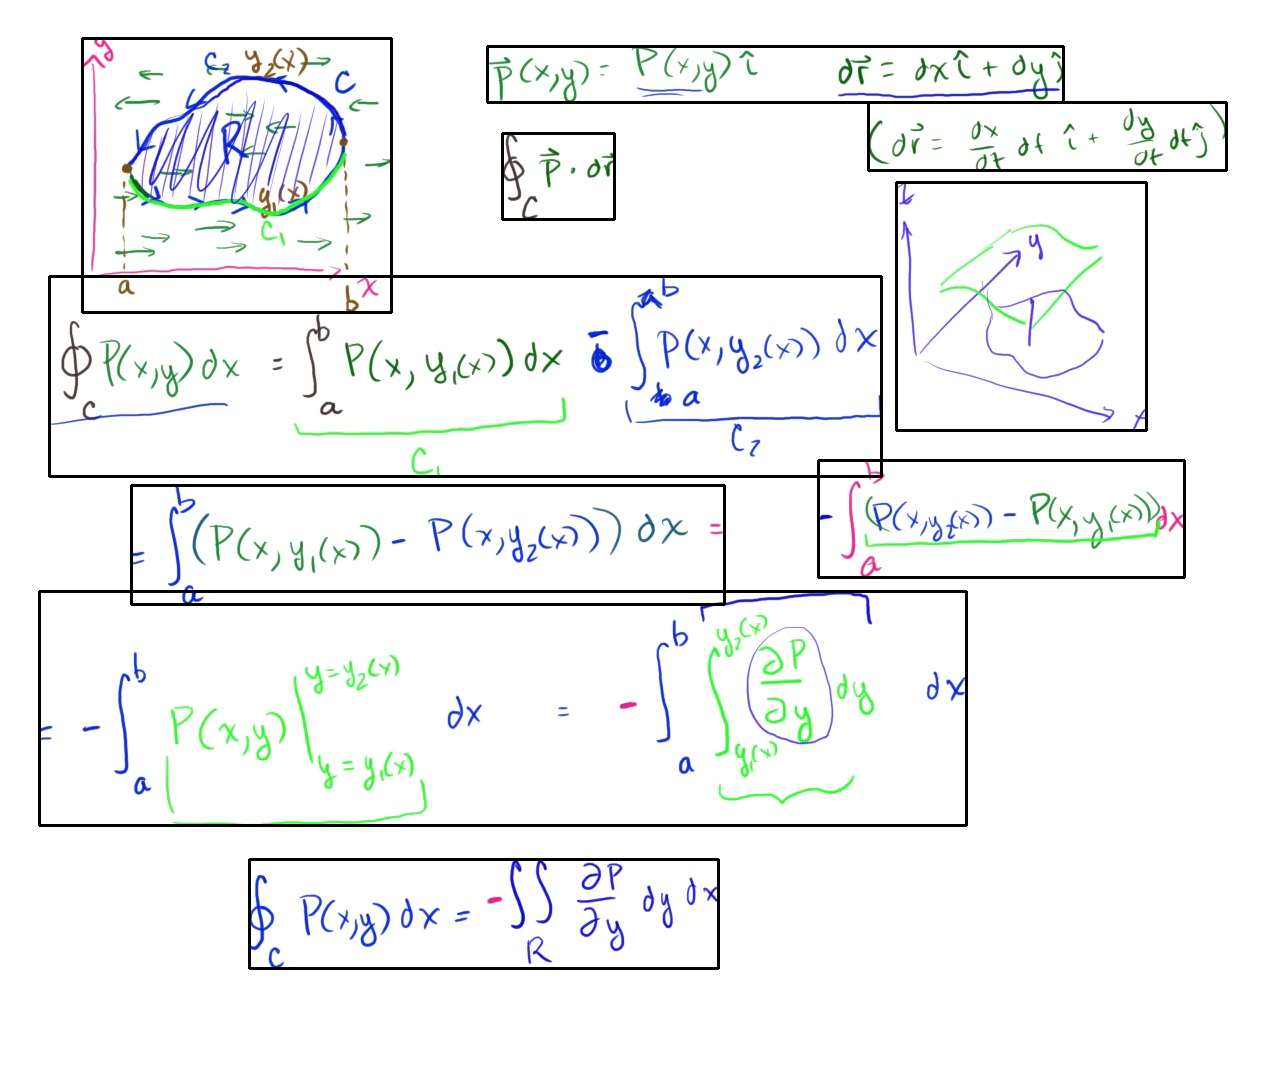 y
C₂ y₂(x)
C
R
y₁(x)
C₁
a b x
p⃗(x,y) = P(x,y) î dr⃗ = dx î + dy ĵ
(dr⃗ = dx/dt dt î + dy/dt dt ĵ)
∮_C p⃗ · dr⃗
y
x
∮_C P(x,y) dx = ∫_a^b P(x, y₁(x)) dx - ∫_a^b P(x, y₂(x)) dx
C₁ C₂
= ∫_a^b (P(x, y₁(x)) - P(x, y₂(x))) dx =
- ∫_a^b (P(x, y₂(x)) - P(x, y₁(x))) dx
= - ∫_a^b P(x,y) |_{y = y₁(x)}^{y = y₂(x)} dx = - ∫_a^b ∫_{y₁(x)}^{y₂(x)} ∂P/∂y dy dx
∮_C P(x,y) dx = - ∫∫_R ∂P/∂y dy dx